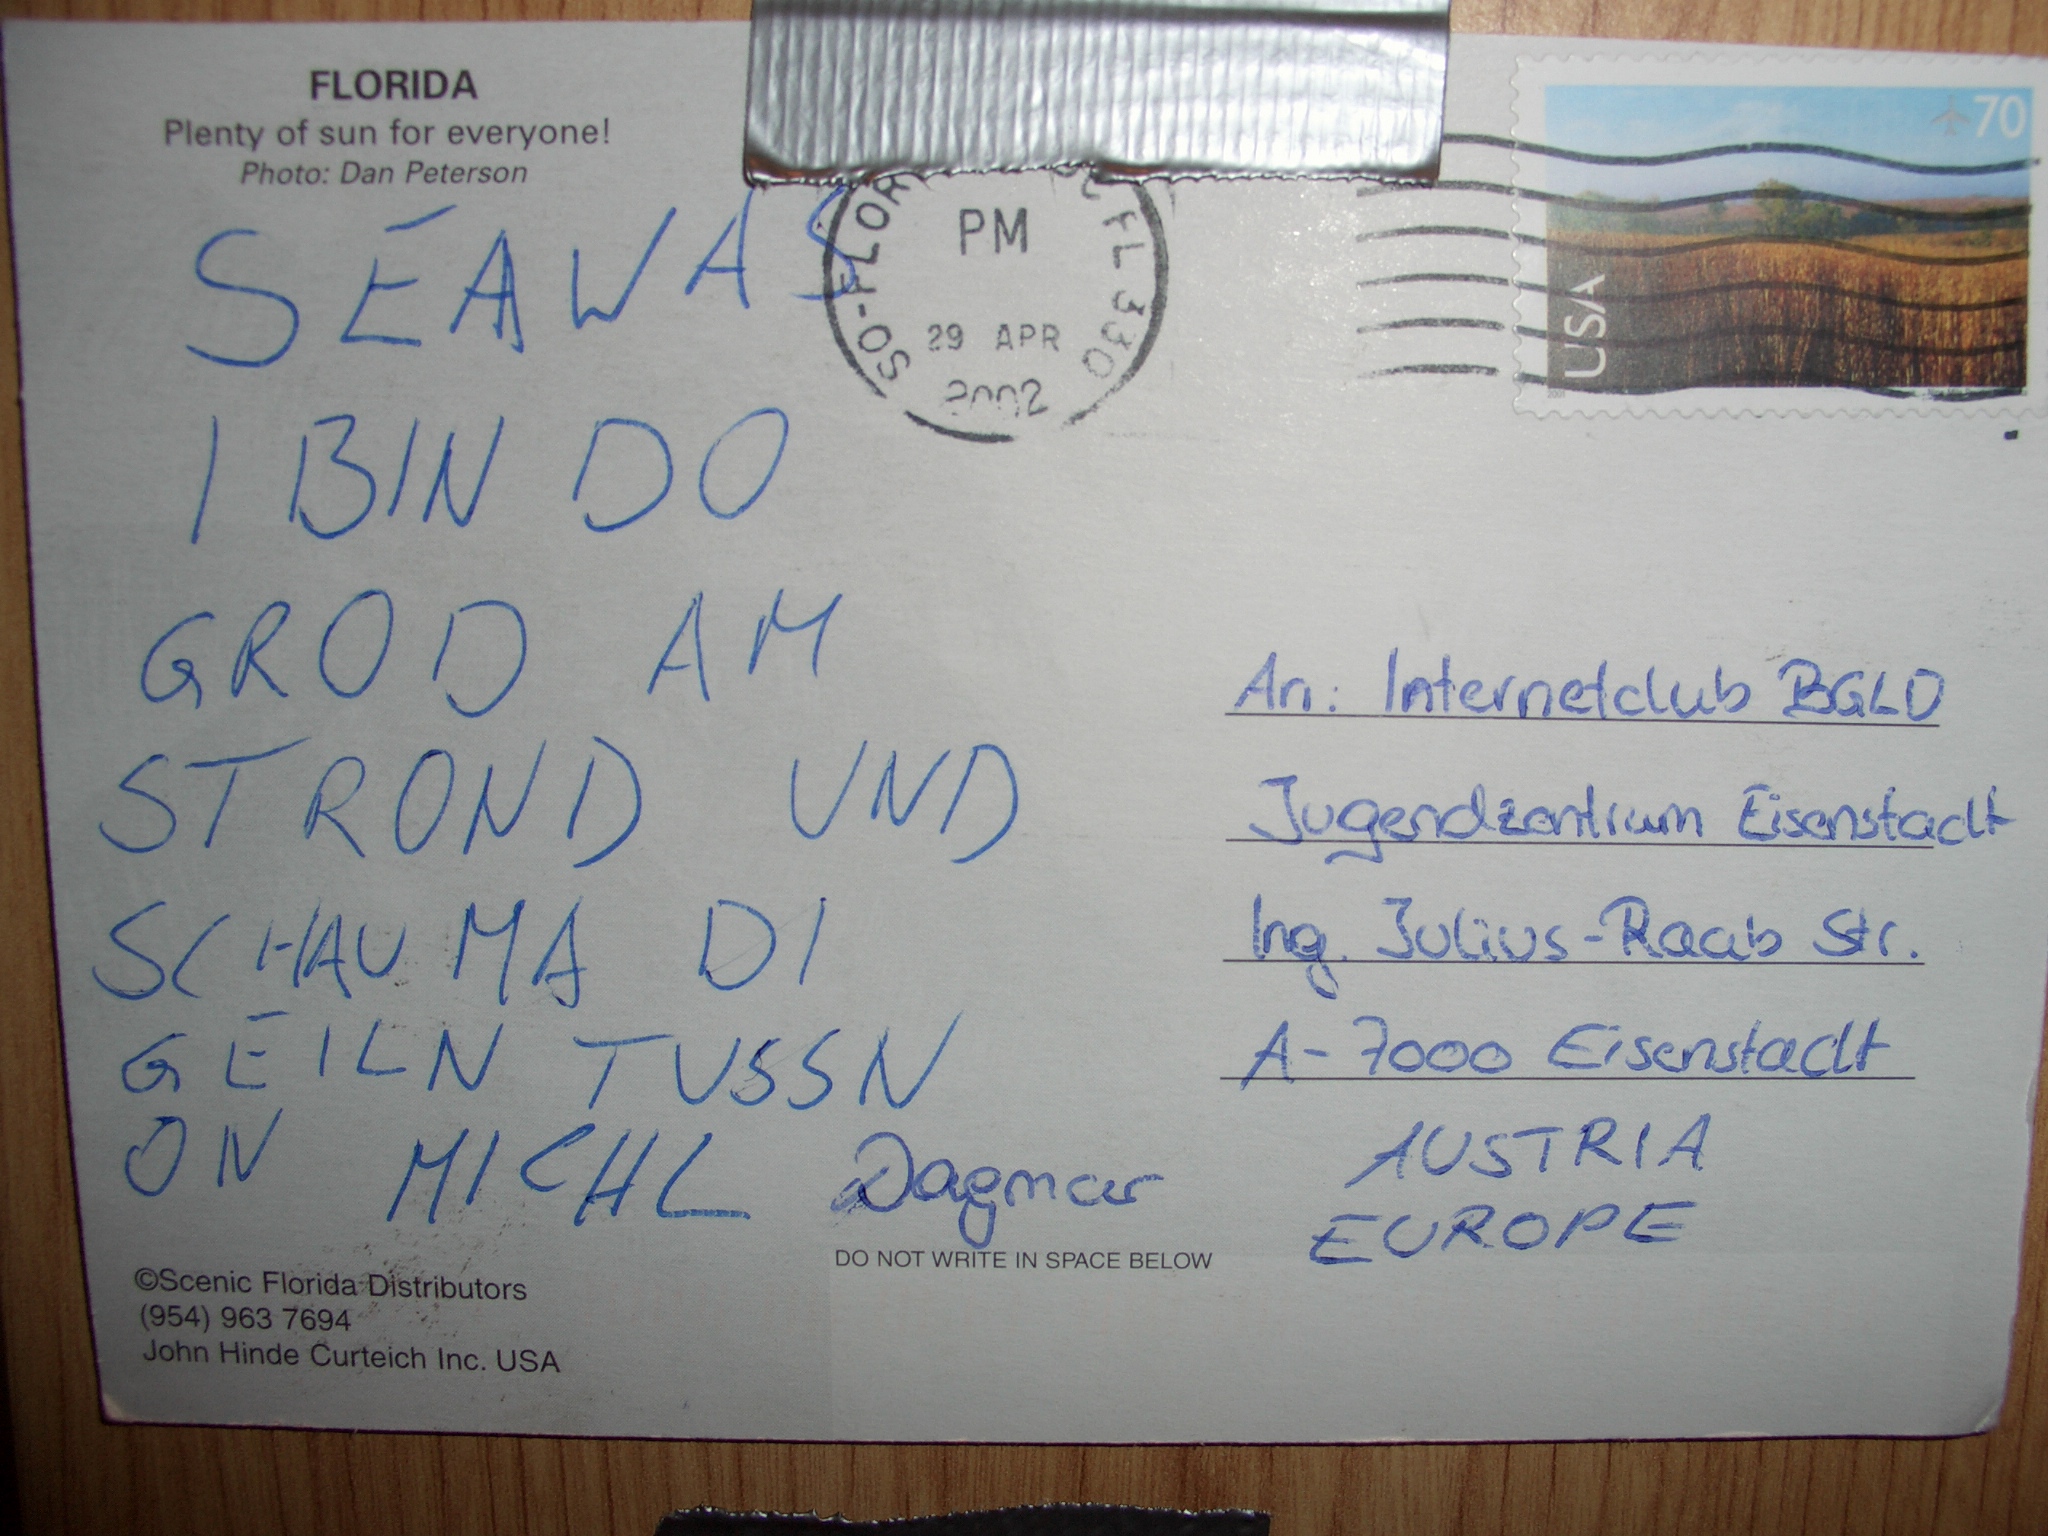 FLORIDA
Plenty of sun for everyone!
Photo: Dan Peterson
SEAWAS
I BIN DO
GROD AM
STROND UND
SCHAU MA DI
GEILN TUSSN
ON MICHL Dagmar
©Scenic Florida Distributors
(954) 963 7694
John Hinde Curteich Inc. USA
DO NOT WRITE IN SPACE BELOW
SO-FLOR FL 330
PM
29 APR
2002
70
USA
An: Internetclub BGLD
Jugendzentrum Eisenstadt
Ing. Julius-Raab Str.
A-7000 Eisenstadt
AUSTRIA
EUROPE